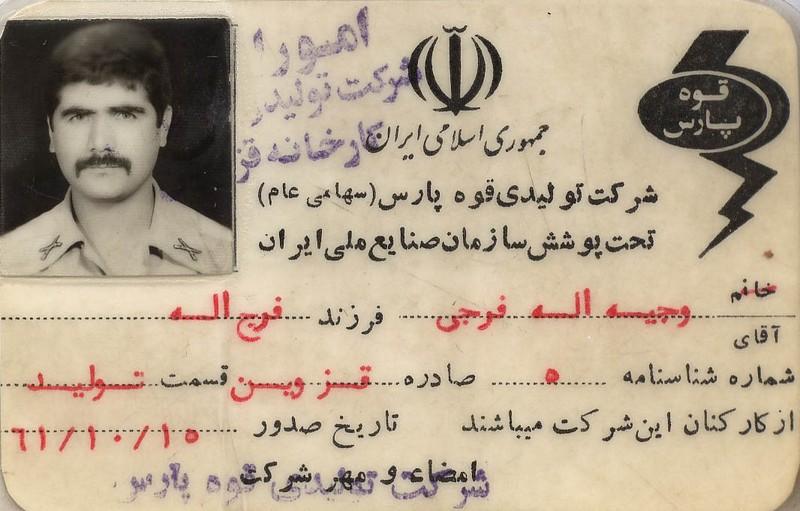 قوه
پارس
جمهوری اسلامی ایران
شرکت تولیدی قوه پارس (سهامی عام)
تحت پوشش سازمان صنایع ملی ایران
خانم
آقای وجیه اله فرجی فرزند فرج اله
شماره شناسنامه ۵ صادره قزوین قسمت تولید
از کارکنان این شرکت میباشند تاریخ صدور ۶۱/۱۰/۱۵
امضاء و مهر شرکت
امور
شرکت تولید
کارخانه قز
شرکت تولیدی قوه پارس